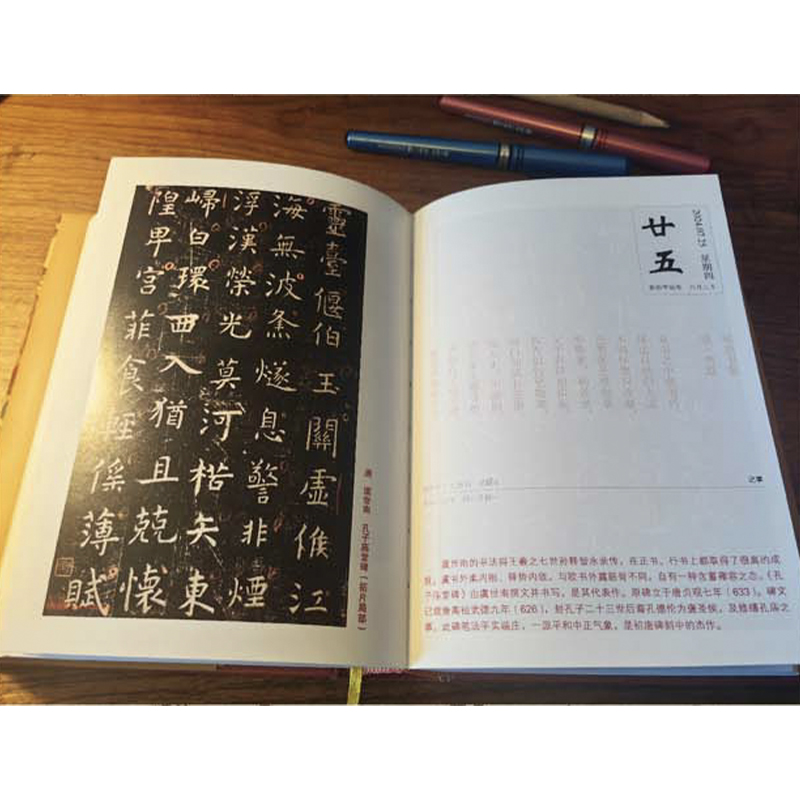 靈臺偃伯玉關虛候江
海無波烽燧息警非煙
浮漢榮光莫河楛矢東
歸白環西入猶且兢懷
隍卑宮菲食輕徭薄賦
唐 虞世南 孔子庙堂碑（拓片局部）
2024.07.25 星期四
廿五
农历甲辰年 六月二十
记事
虞世南的书法得王羲之七世孙释智永亲传，在正书、行书上都取得了很高的成
就。虞书外柔内刚，释势内敛，与欧书外露筋骨不同，自有一种含蓄雍容之态。《孔
子庙堂碑》由虞世南撰文并书写，是其代表作。原碑立于唐贞观七年（633）。碑文
记载唐高祖武德九年（626），封孔子二十三世后裔孔德伦为褒圣侯，及修缮孔庙之
事，此碑笔法平实端庄，一派平和中正气象，是初唐碑刻中的杰作。